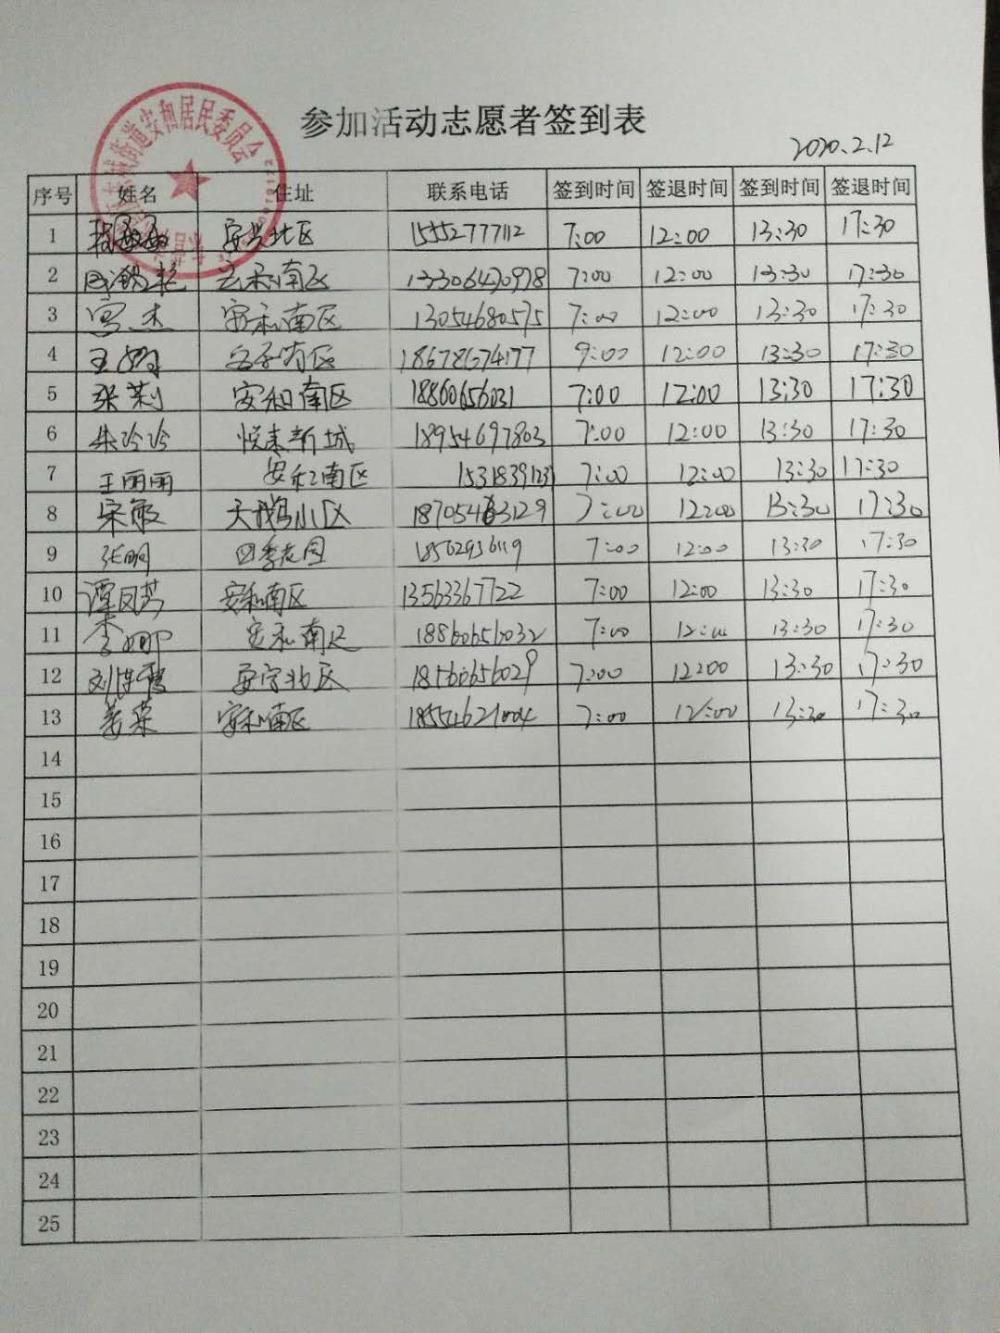 街道安和居民委员会
参加活动志愿者签到表
2020.2.12
序号 姓名 住址 联系电话 签到时间 签退时间 签到时间 签退时间
1 安兴北区 15552777112 7:00 12:00 13:30 17:30
2 安和南区 13306470978 7:00 12:00 13:30 17:30
3 宫杰 安和南区 13054680575 7:00 12:00 13:30 17:30
4 王 18678674177 9:00 12:00 13:30 17:30
5 张莉 安和南区 18860656031 7:00 12:00 13:30 17:30
6 朱玲玲 悦来新城 18954697803 7:00 12:00 13:30 17:30
7 王丽丽 安和南区 7:00 12:00 13:30 17:30
8 宋敏 天鹅小区 7:00 12:00 13:30 17:30
9 张明 四季花园 7:00 12:00 13:30 17:30
10 谭凤芳 安和南区 13563367722 7:00 12:00 13:30 17:30
11 李娜 安和南区 18860656032 7:00 12:00 13:30 17:30
12 刘 安宁北区 18560656029 7:00 12:00 13:30 17:30
13 姜荣 安和南区 18554621004 7:00 12:00 13:30 17:30
14
15
16
17
18
19
20
21
22
23
24
25